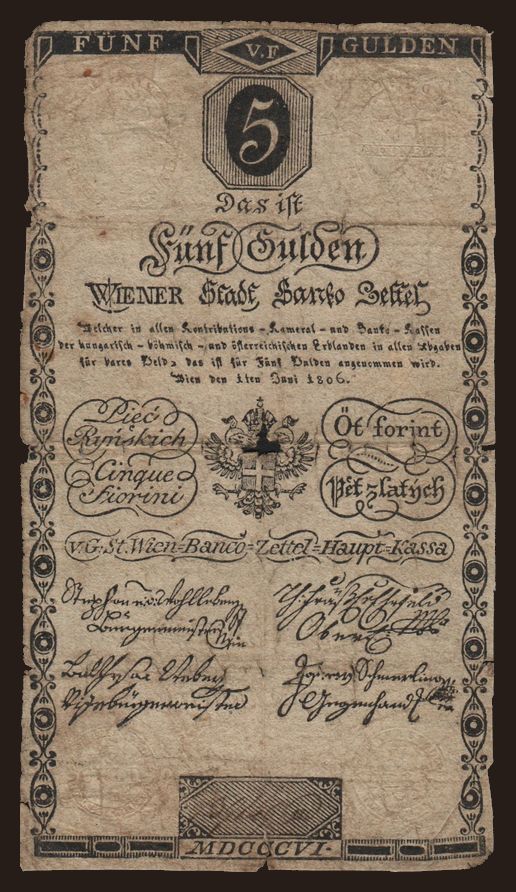 FÜNF V.F GULDEN
5
Das ist
Fünf Gulden
WIENER Stadt Banko Zettel
Welcher in allen Kontributions - Kameral - und Banko - Kassen
der hungarisch - böhmisch - und österreichischen Erblanden in allen Abgaben
für bares Geld, das ist für Fünf Gulden angenommen wird.
Wien den 1ten Juni 1806.
Pięć
Ryńskich
Öt forint
Cinque
Fiorini
Pět zlatých
v. G. St. Wien=Banco=Zettel=Haupt=Kassa
Stephan
Burgermeister
Ober
Vizebürgermeister
Schmerling
Gegenhand
MDCCCVI.